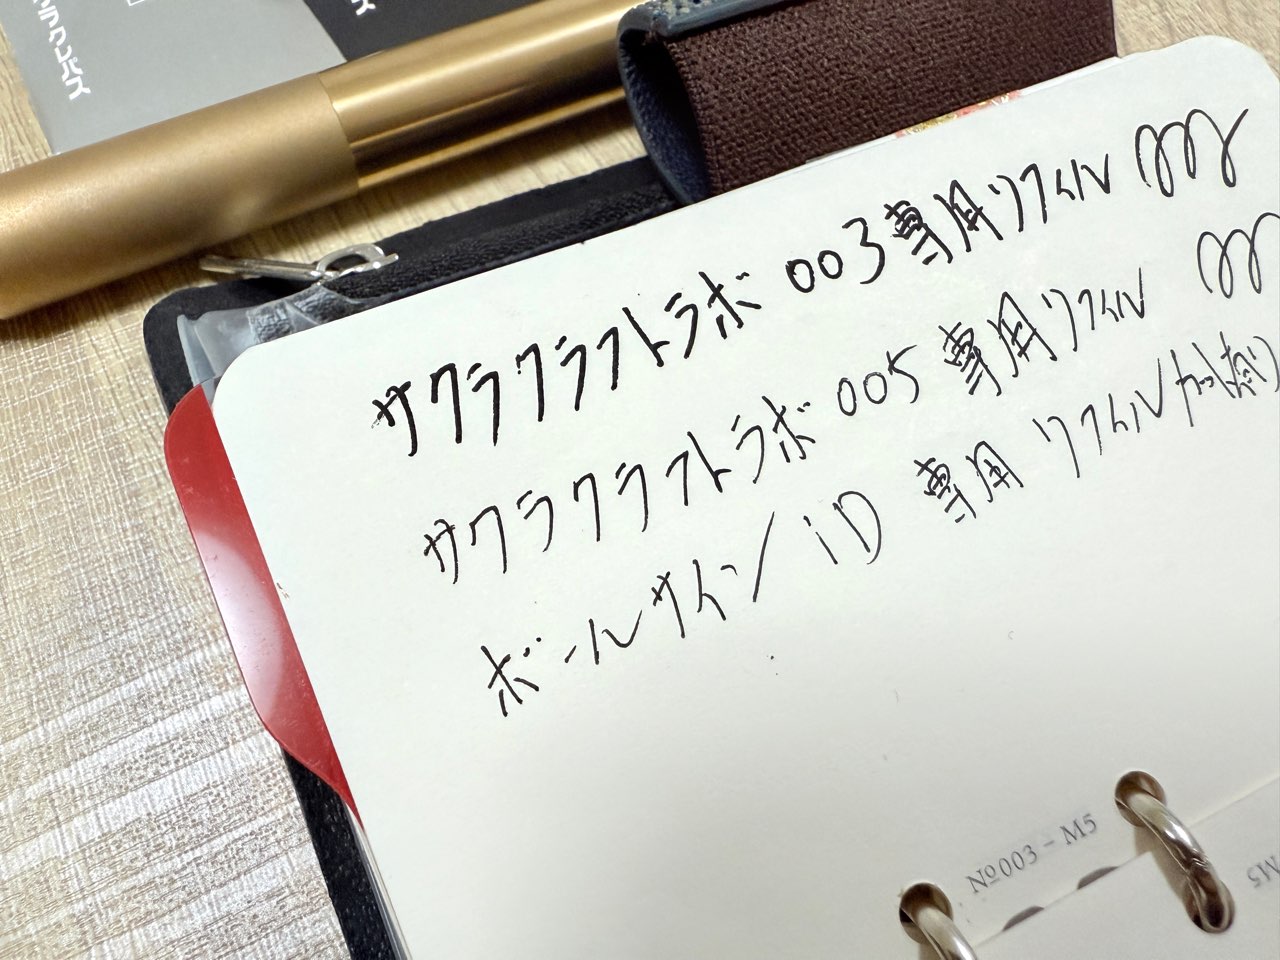 サクラクラフトラボ 003専用リフィル
サクラクラフトラボ 005 専用リフィル
ボールサイン iD 専用 リフィルカット有り
№003 - M5
M5